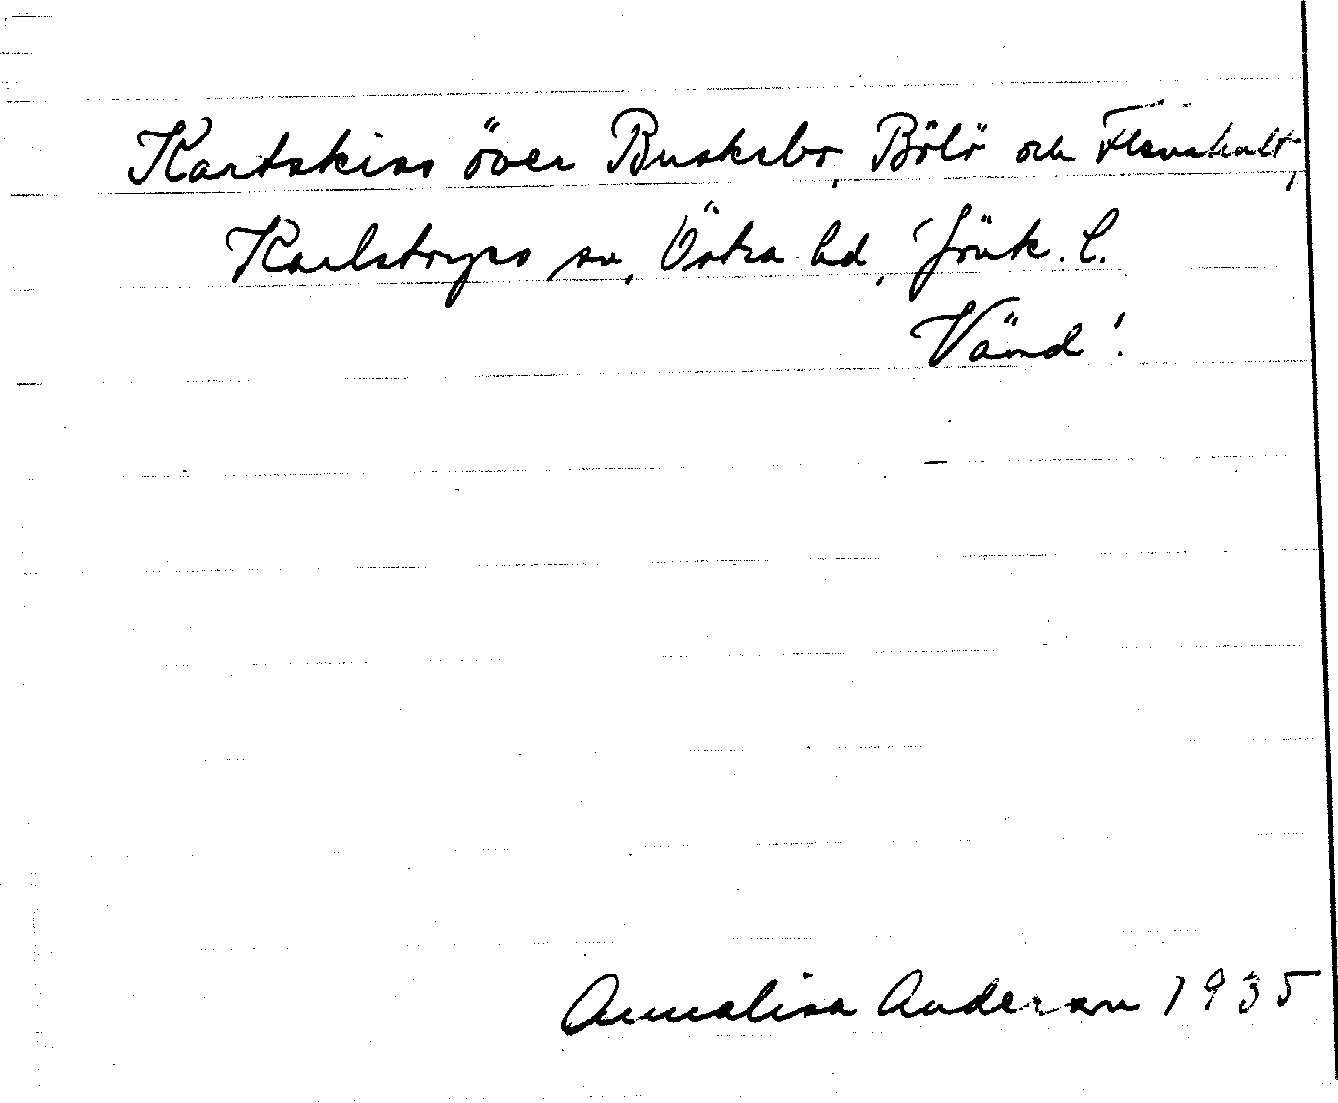 Kartskiss över Busksbo, Bölö och Flenshult,
Karlstorps sn, Östra hd, Jönk. l.
Vänd!
Annalisa Anderson 1935